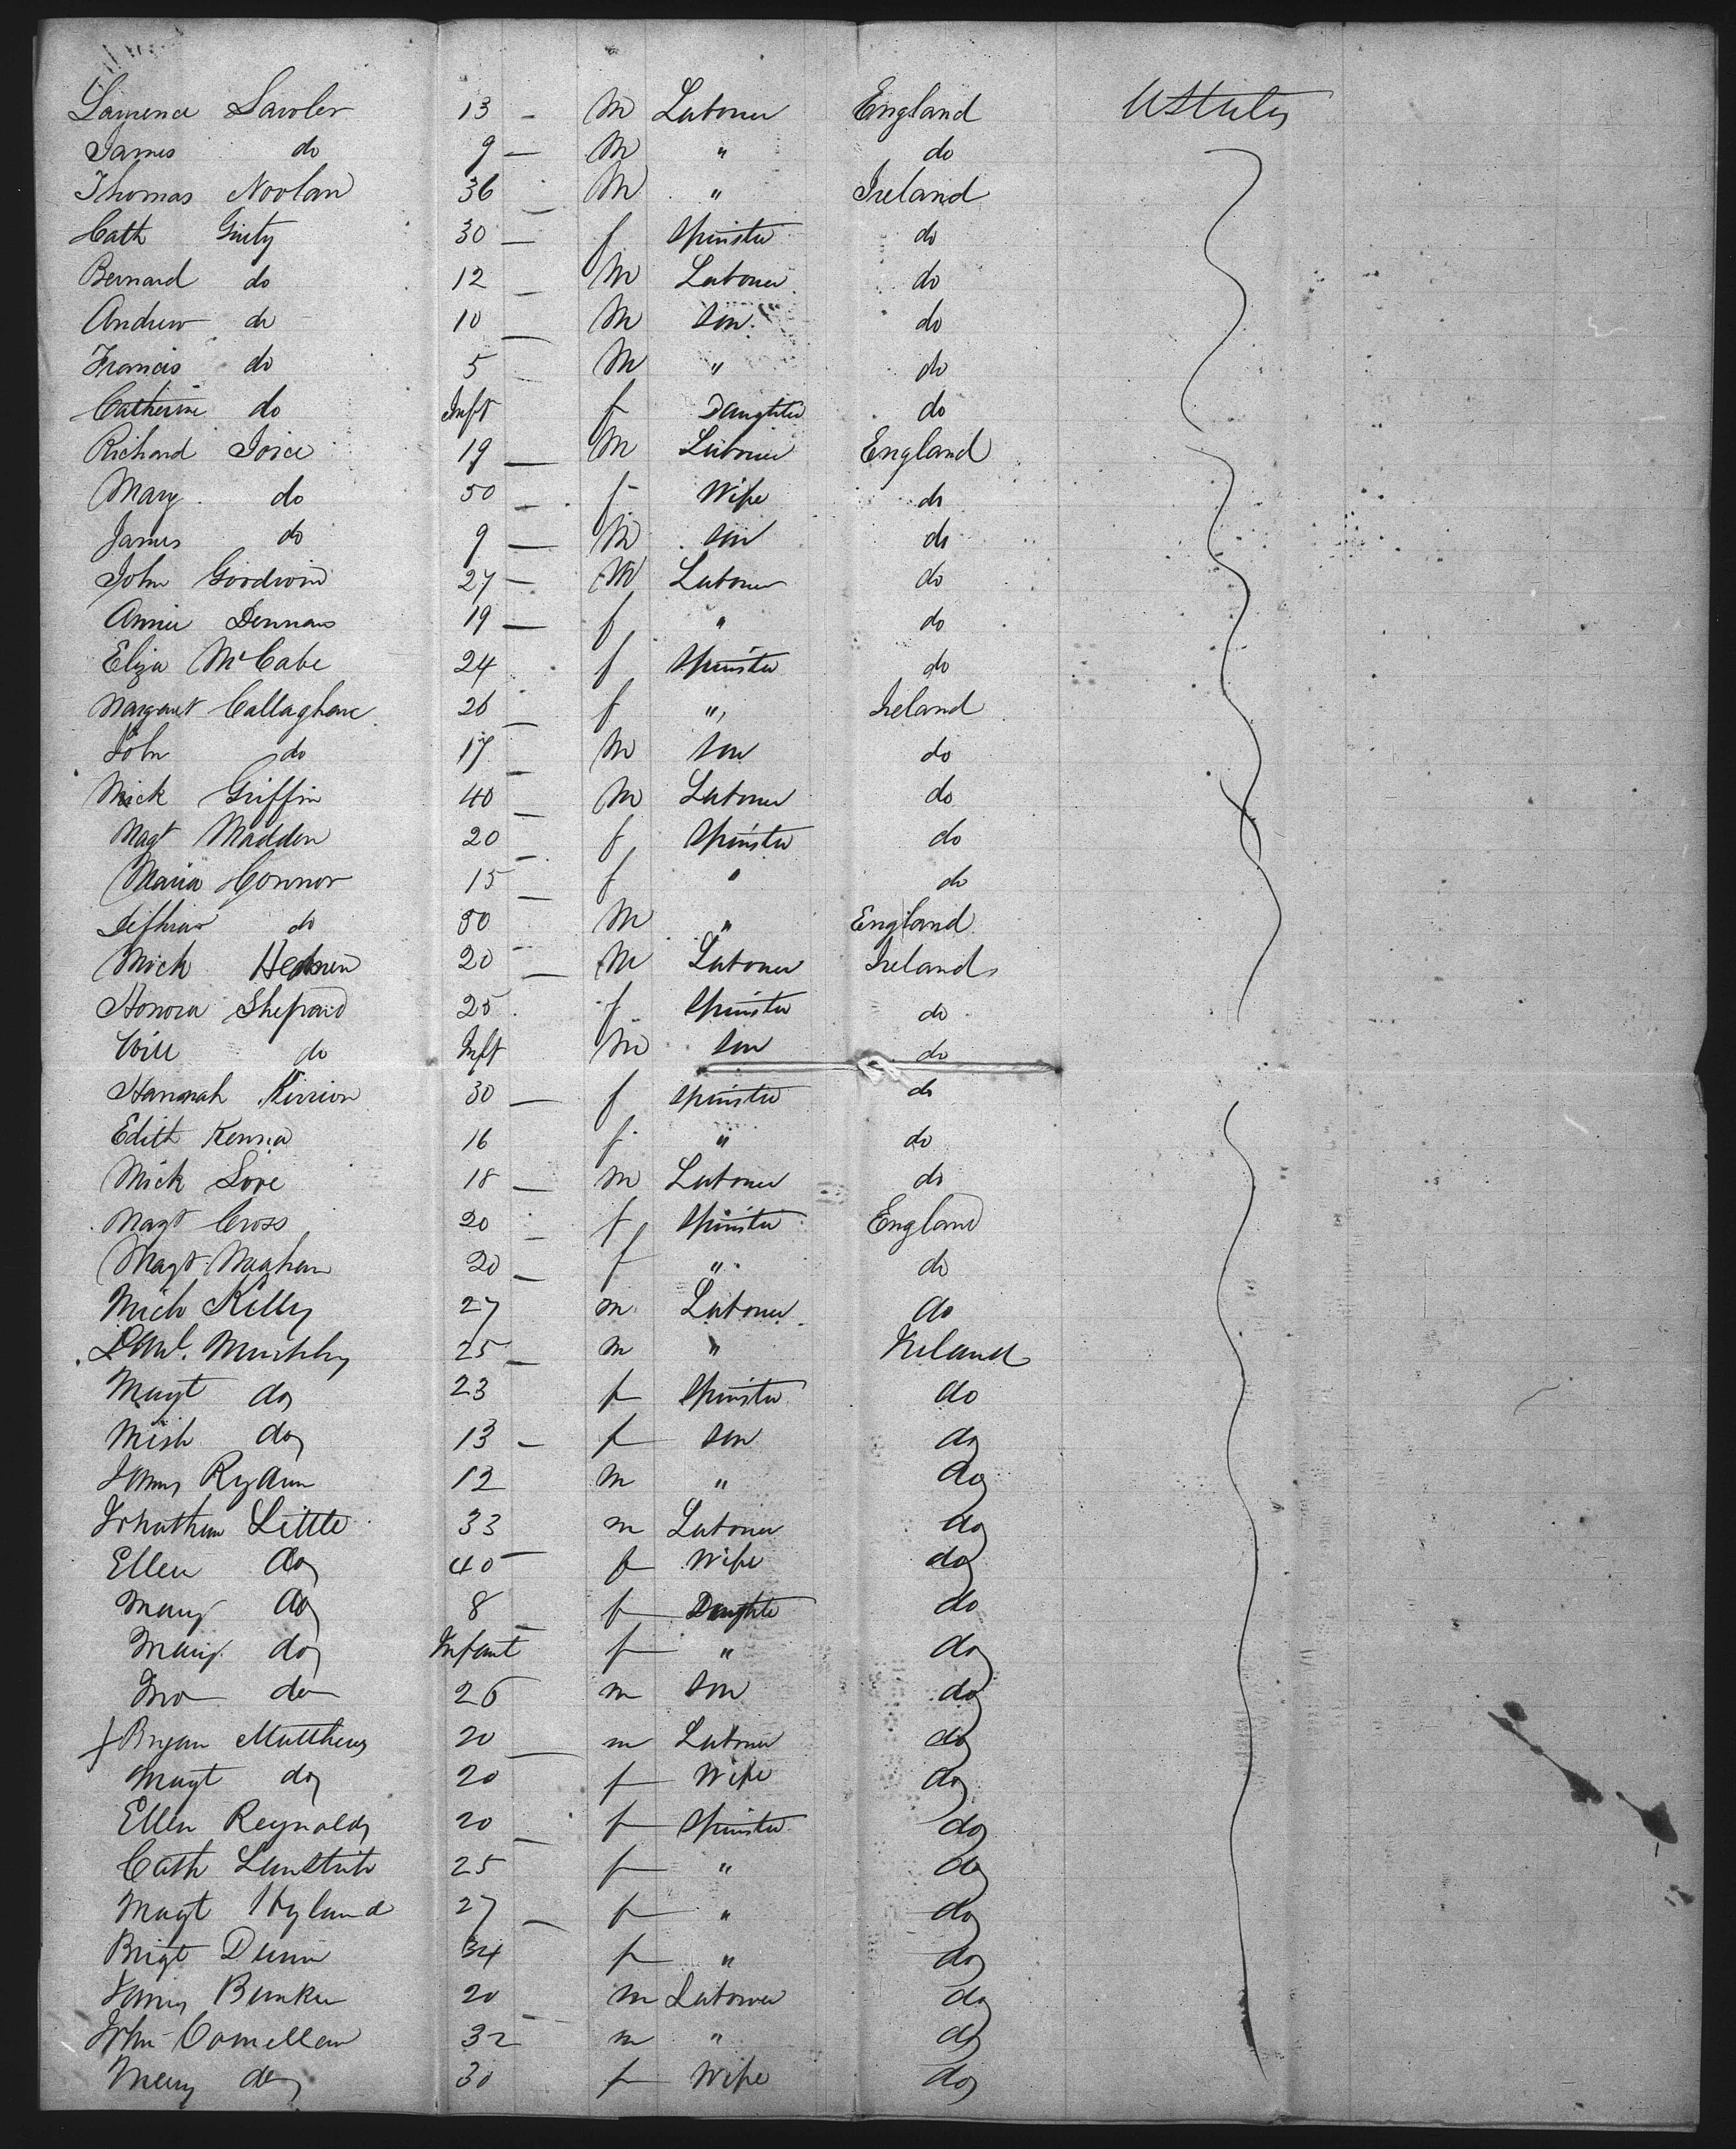 Lawrence Lawler 13 - M Labourer England UStates
James do 9 - M " do
Thomas Noolan 36 - M " Ireland
Cath Ginty 30 - f Spinster do
Bernard do 12 - M Labourer do
Andrew do 10 - M Son do
Francis do 5 M " do
Catherine do Inft f Daughter do
Richard Joice 19 - M Labourer England
Mary do 50 - f Wife do
James do 9 - M Son do
John Goodwin 27 - M Labourer do
Annie Dennans 19 - f " do
Eliza McCabe 24 f Spinster do
Margaret Callaghan 26 - f " Ireland
John do 17 - M Son do
Mick Griffin 40 - M Labourer do
Magt Madden 20 - f Spinster do
Maria Connor 15 - f " do
do 50 - M " England
Mick 20 - M Labourer Ireland
Honora Shepard 25 f Spinster do
Will do Inft M Son do
Hannah 30 - f Spinster do
Edith Kenna 16 f " do
Mick Love 18 - M Labourer do
Magt Cross 20 - f Spinster England
Magt 20 - f " do
Mich Kelly 27 m Labourer do
Murphy 25 - m " Ireland
Magt do 23 f Spinster do
Mich do 13 - f Son do
James 12 m " do
Johnathan Little 33 m Labourer do
Ellen do 40 - f Wife do
Mary do 8 - f Daughter do
Mary do Infant f " do
Jno do 26 m Son do
Bryan Matthews 20 - m Labourer do
Magt do 20 f Wife do
Ellen Reynolds 20 - f Spinster do
Cath 25 f " do
Magt Hyland 27 - f " do
Brigt Dunn 34 f " do
James Bunker 20 - m Labourer do
John 32 m " do
Mary do 30 f Wife do